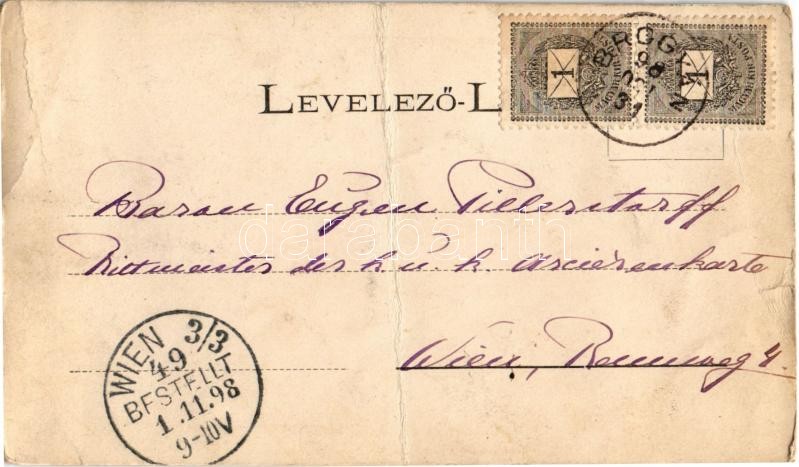 LEVELEZŐ-L
1 1
98
31
N
Baron Eugen Pillerstorff
Rittmeister der k. u. k. Arcierenkarte
Wien, Rennweg 4.
darabanth
WIEN 3/3
49
BESTELLT
1.11.98
9-10V